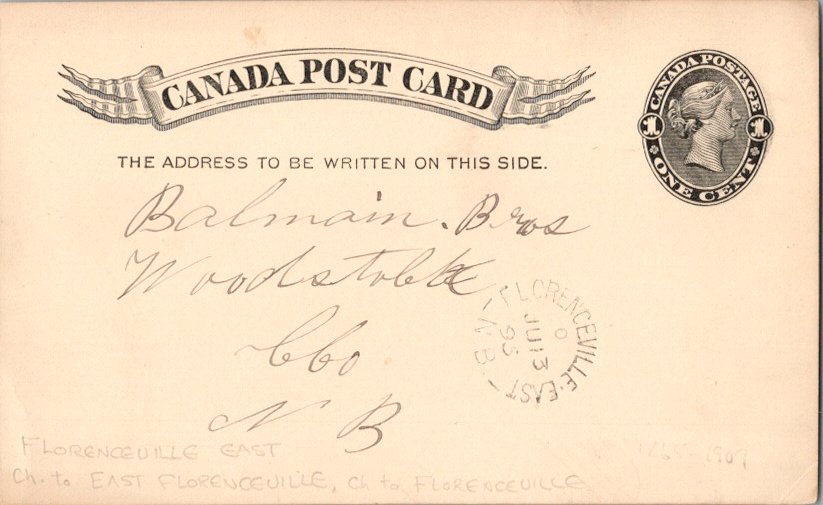 CANADA POST CARD
CANADA POSTAGE
1 1
ONE CENT
THE ADDRESS TO BE WRITTEN ON THIS SIDE.
Balmain. Bros
Woodstock
CCo
N B
FLORENCEVILLE·EAST
O
JU 13
95
N B
FLORENCEVILLE EAST
Ch. to EAST FLORENCEVILLE, Ch to FLORENCEVILLE